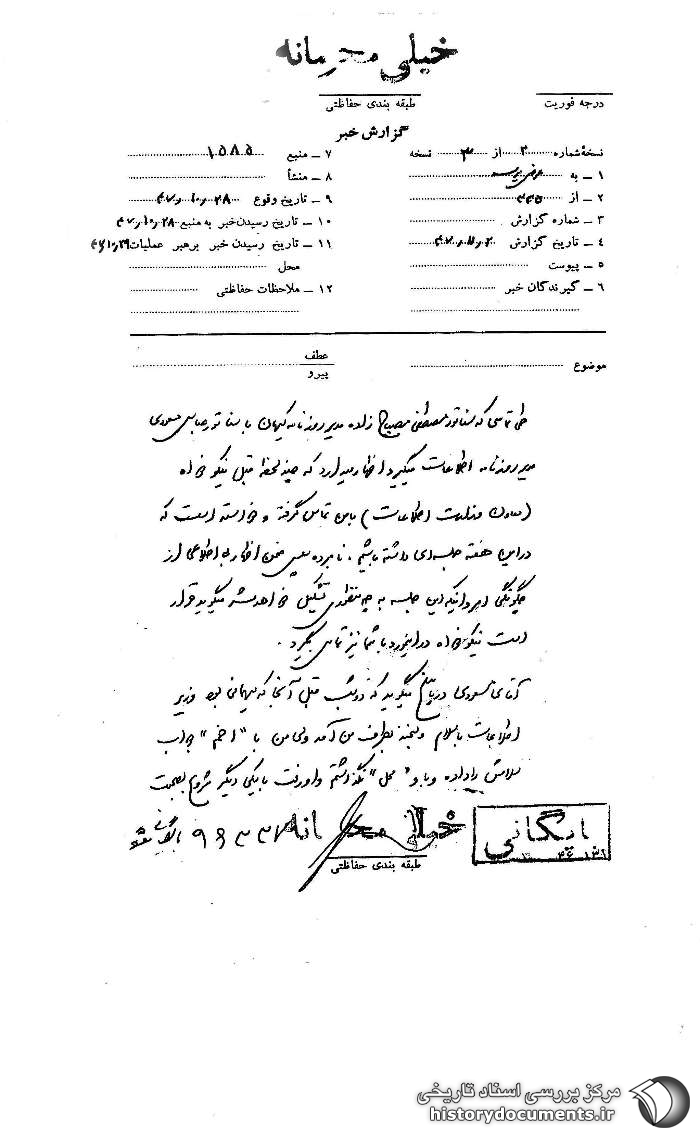 خیلی محرمانه
طبقه بندی حفاظتی
درجه فوریت
گزارش خبر
نسخهٔ شماره ۲ از ۳ نسخه
۱ – به
۲ – از ۳۳۵
۳ – شماره گزارش
۴ – تاریخ گزارش
۵ – پیوست
۶ – گیرندگان خبر
۷ – منبع ۱۵۸۵
۸ – منشأ
۹ – تاریخ وقوع ۴۷٫۱۰٫۲۸
۱۰ – تاریخ رسیدن خبر به منبع ۴۷٫۱۰٫۲۸
۱۱ – تاریخ رسیدن خبر برهبر عملیات
محل
۱۲ – ملاحظات حفاظتی
موضوع
عطف
پیرو
طی تماسی که سناتور مصطفی مصباح زاده مدیر روزنامه کیهان با سناتور عباس مسعودی
مدیر روزنامه اطلاعات میگیرد اظهار میدارد که چند لحظه قبل نیکو خواه
(معاون وزارت اطلاعات) با من تماس گرفته و خواسته است که
در این هفته جلسه‌ای داشته باشیم. نامبرده سپس ضمن اظهار بی اطلاعی از
چگونگی امر و اینکه این جلسه به چه منظوری تشکیل خواهد شد میگوید قرار
است نیکو خواه در اینمورد با شما نیز تماس بگیرد.
آقای مسعودی در پاسخ میگوید که دو شب قبل آنجا که میهمانی بود وزیر
اطلاعات با سلام و لبخند بطرف من آمد ولی من با "اخم" جواب
سلامش را داده و باو "محل" نگذاشتم و او رفت با یکی دیگر شروع بصحبت
خیلی محرمانه
طبقه بندی حفاظتی
بایگانی
مرکز بررسی اسناد تاریخی
historydocuments.ir